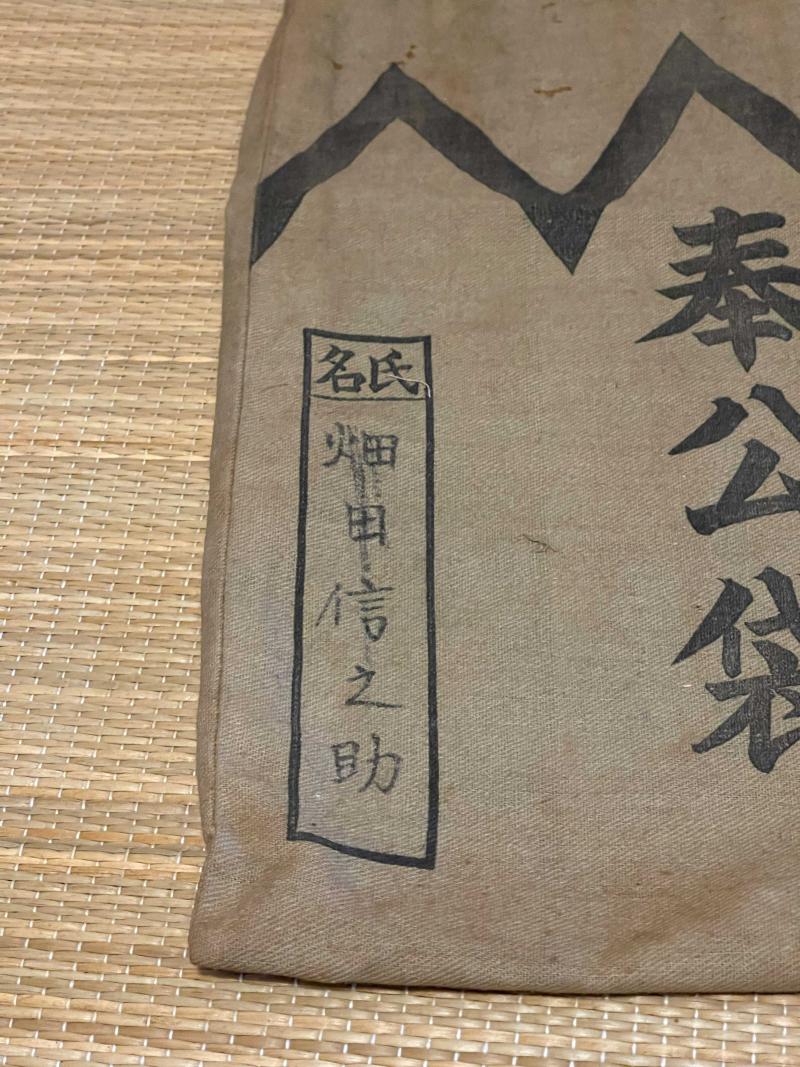 奉公袋
氏名
畑田信之助